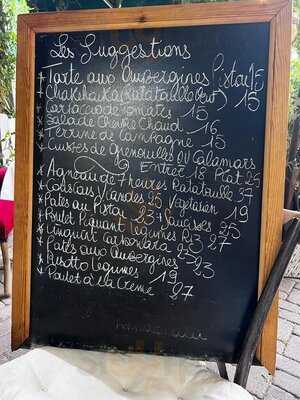 Les Suggestions
Tarte aux Aubergines Pistou 15
Chakchouka (Ratatouille oeuf) 15
Carpaccio de tomates 15
Salade Chèvre Chaud 16
Terrine de Campagne 15
Cuisses de Grenouilles ou Calamars
Entrée 18 Plat 25
Agneau de 7 heures Ratatouille 37
Couscous Viandes 25 Vegetarien 19
Pâtes au Pistou 23 + Saucisses 25
Poulet Piquant Légumes Riz 27
Linguini Carbonara 25
Pates aux Aubergines 23
Risotto Legumes 19
Poulet à la Crème 27